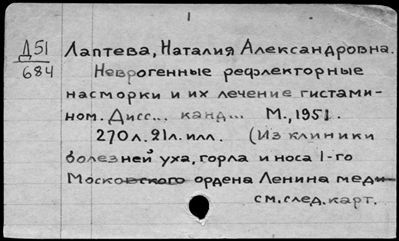 1
Д51 Лаптева, Наталия Александровна.
684 Неврогенные рефлекторные
насморки и их лечение гистами-
ном. Дисс... канд... М., 1951.
270л. 21л. илл. (Из клиники
болезней уха, горла и носа 1-го
Московского ордена Ленина меди-
см. след. карт.